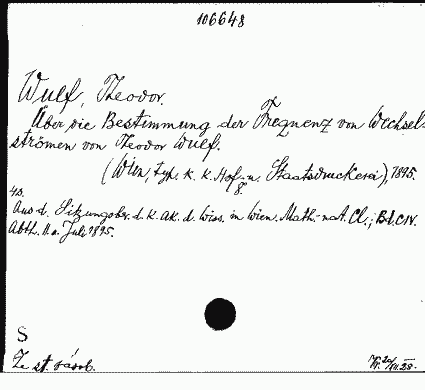 106648
Wulf, Theodor.
Über die Bestimmung der Frequenz von Wechsel-
strömen von Theodor Wulf.
(Wien, typ. k. k. Hof- u. Staatsdruckerei), 1895.
8.
40.
Aus d. Sitzungsber. d. k. Ak. d. Wiss. in Wien. Math.-nat. Cl.; Bd. CIV.
Abth. II a. Juli 1895.
S
Ze st. zásob.